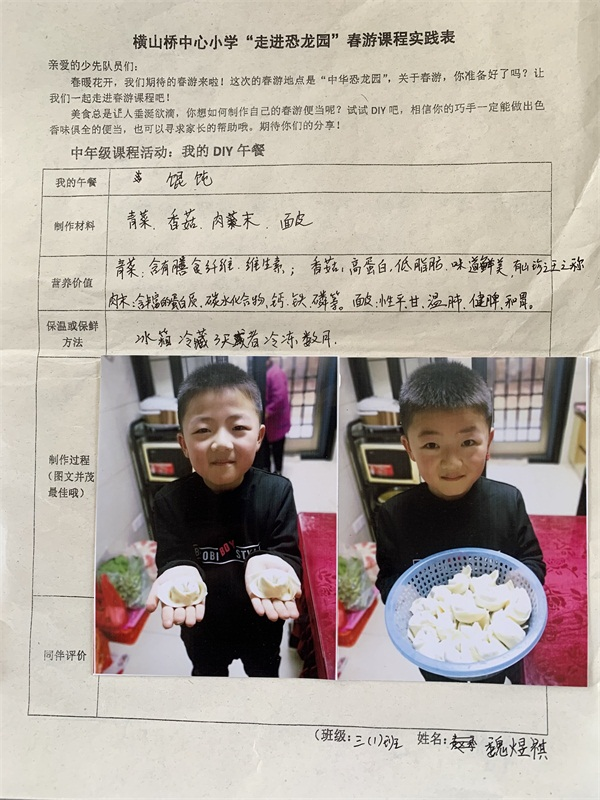 横山桥中心小学“走进恐龙园”春游课程实践表
亲爱的少先队员们：
春暖花开，我们期待的春游来啦！这次的春游地点是“中华恐龙园”，关于春游，你准备好了吗？让
我们一起走进春游课程吧！
美食总是让人垂涎欲滴，你想如何制作自己的春游便当呢？试试 DIY 吧，相信你的巧手一定能做出色
香味俱全的便当，也可以寻求家长的帮助哦。期待你们的分享！
中年级课程活动：我的 DIY 午餐
我的午餐
馄饨
制作材料
青菜、香菇、肉末、面皮
营养价值
青菜：含有膳食纤维、维生素； 香菇：高蛋白，低脂肪、味道鲜美，有山珍之王之称
肉末：含丰富的蛋白质、碳水化合物、钙、铁、磷等。面皮：性平、甘、温肺、健脾、和胃。
保温或保鲜
方法
冰箱冷藏3天或者冷冻数月.
制作过程
（图文并茂
最佳哦）
BOBIBOY STYL
同伴评价
（班级：三(1)班 姓名：魏煜祺